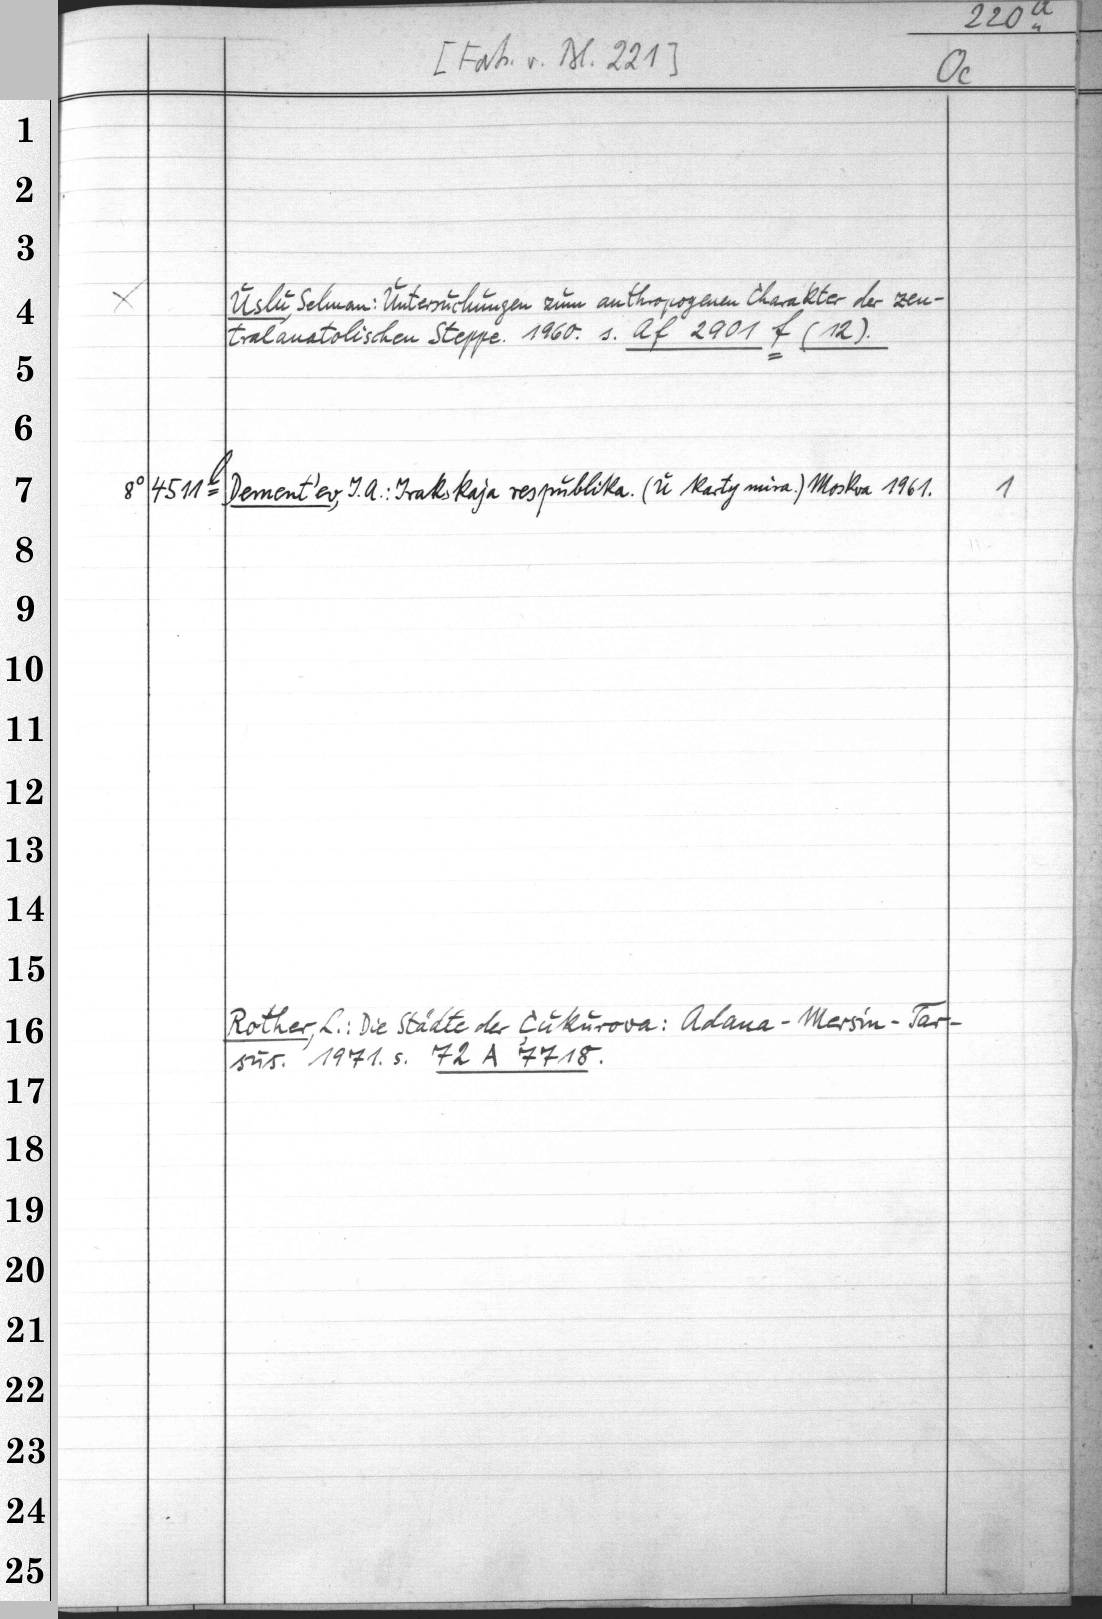 220a
[Forts. v. Bl. 221]
Oc
1
2
3
4
× Uslu, Selman: Untersuchungen zum anthropogenen Charakter der zen-
tralanatolischen Steppe. 1960. s. Af 2901 f (12).
5
6
7
8° 4511 b Dement'ev, I. A.: Irakskaja respublika. (U karty mira.) Moskva 1961. 1
8
9
10
11
12
13
14
15
16
Rother, L.: Die Städte der Çukurova: Adana - Mersin - Tar-
sus. 1971. s. 72 A 7718.
17
18
19
20
21
22
23
24
25